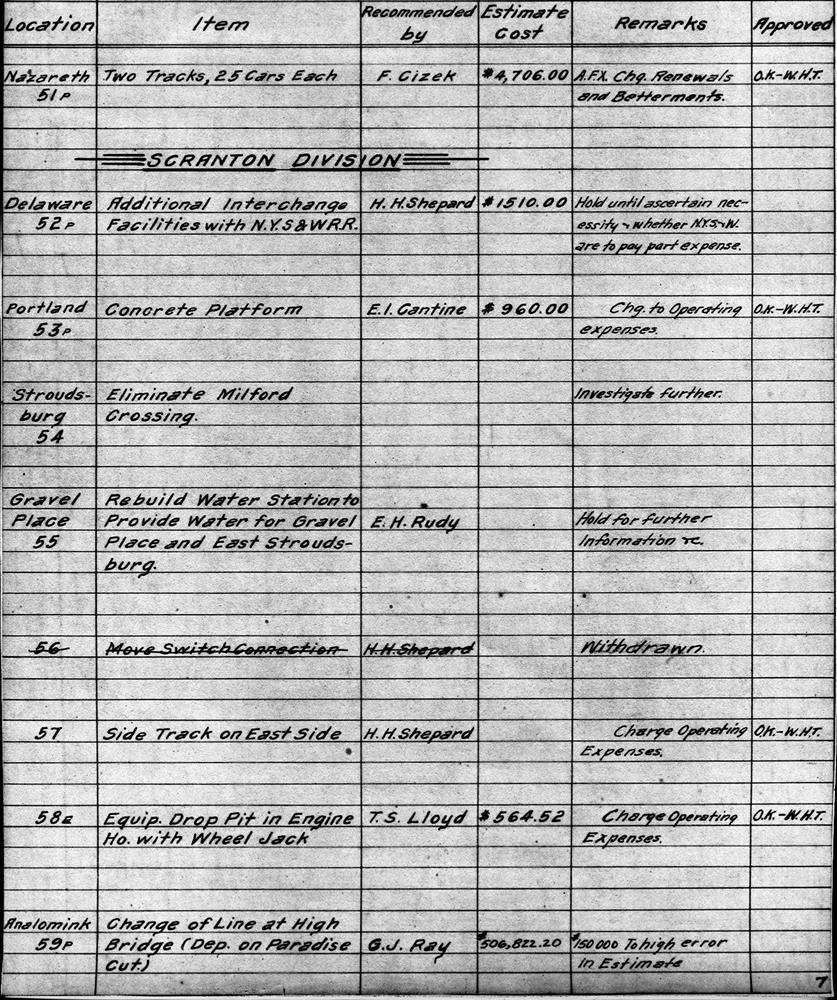 Location Item Recommended by Estimate Cost Remarks Approved
Nazareth Two Tracks, 25 Cars Each F. Cizek $4,706.00 A.F.X. Chg. Renewals O.K.-W.H.T.
51P and Betterments.
SCRANTON DIVISION
Delaware Additional Interchange H.H. Shepard $1510.00 Hold until ascertain nec-
52P Facilities with N.Y.S&WRR. essity & whether N.Y.S.&W.
are to pay part expense.
Portland Concrete Platform E.I. Cantine $960.00 Chg. to Operating O.K.-W.H.T.
53P expenses.
Strouds- Eliminate Milford Investigate further.
burg Crossing.
54
Gravel Rebuild Water Station to
Place Provide Water for Gravel E.H. Rudy Hold for further
55 Place and East Strouds- Information &c.
burg.
56 Move Switch Connection H.H. Shepard Withdrawn.
57 Side Track on East Side H.H. Shepard Charge Operating O.K.-W.H.T.
Expenses.
58E Equip. Drop Pit in Engine T.S. Lloyd $564.52 Charge Operating O.K.-W.H.T.
Ho. with Wheel Jack Expenses.
Analomink Change of Line at High
59P Bridge (Dep. on Paradise G.J. Ray $506,822.20 $150000 To high error
Cut.) In Estimate
7